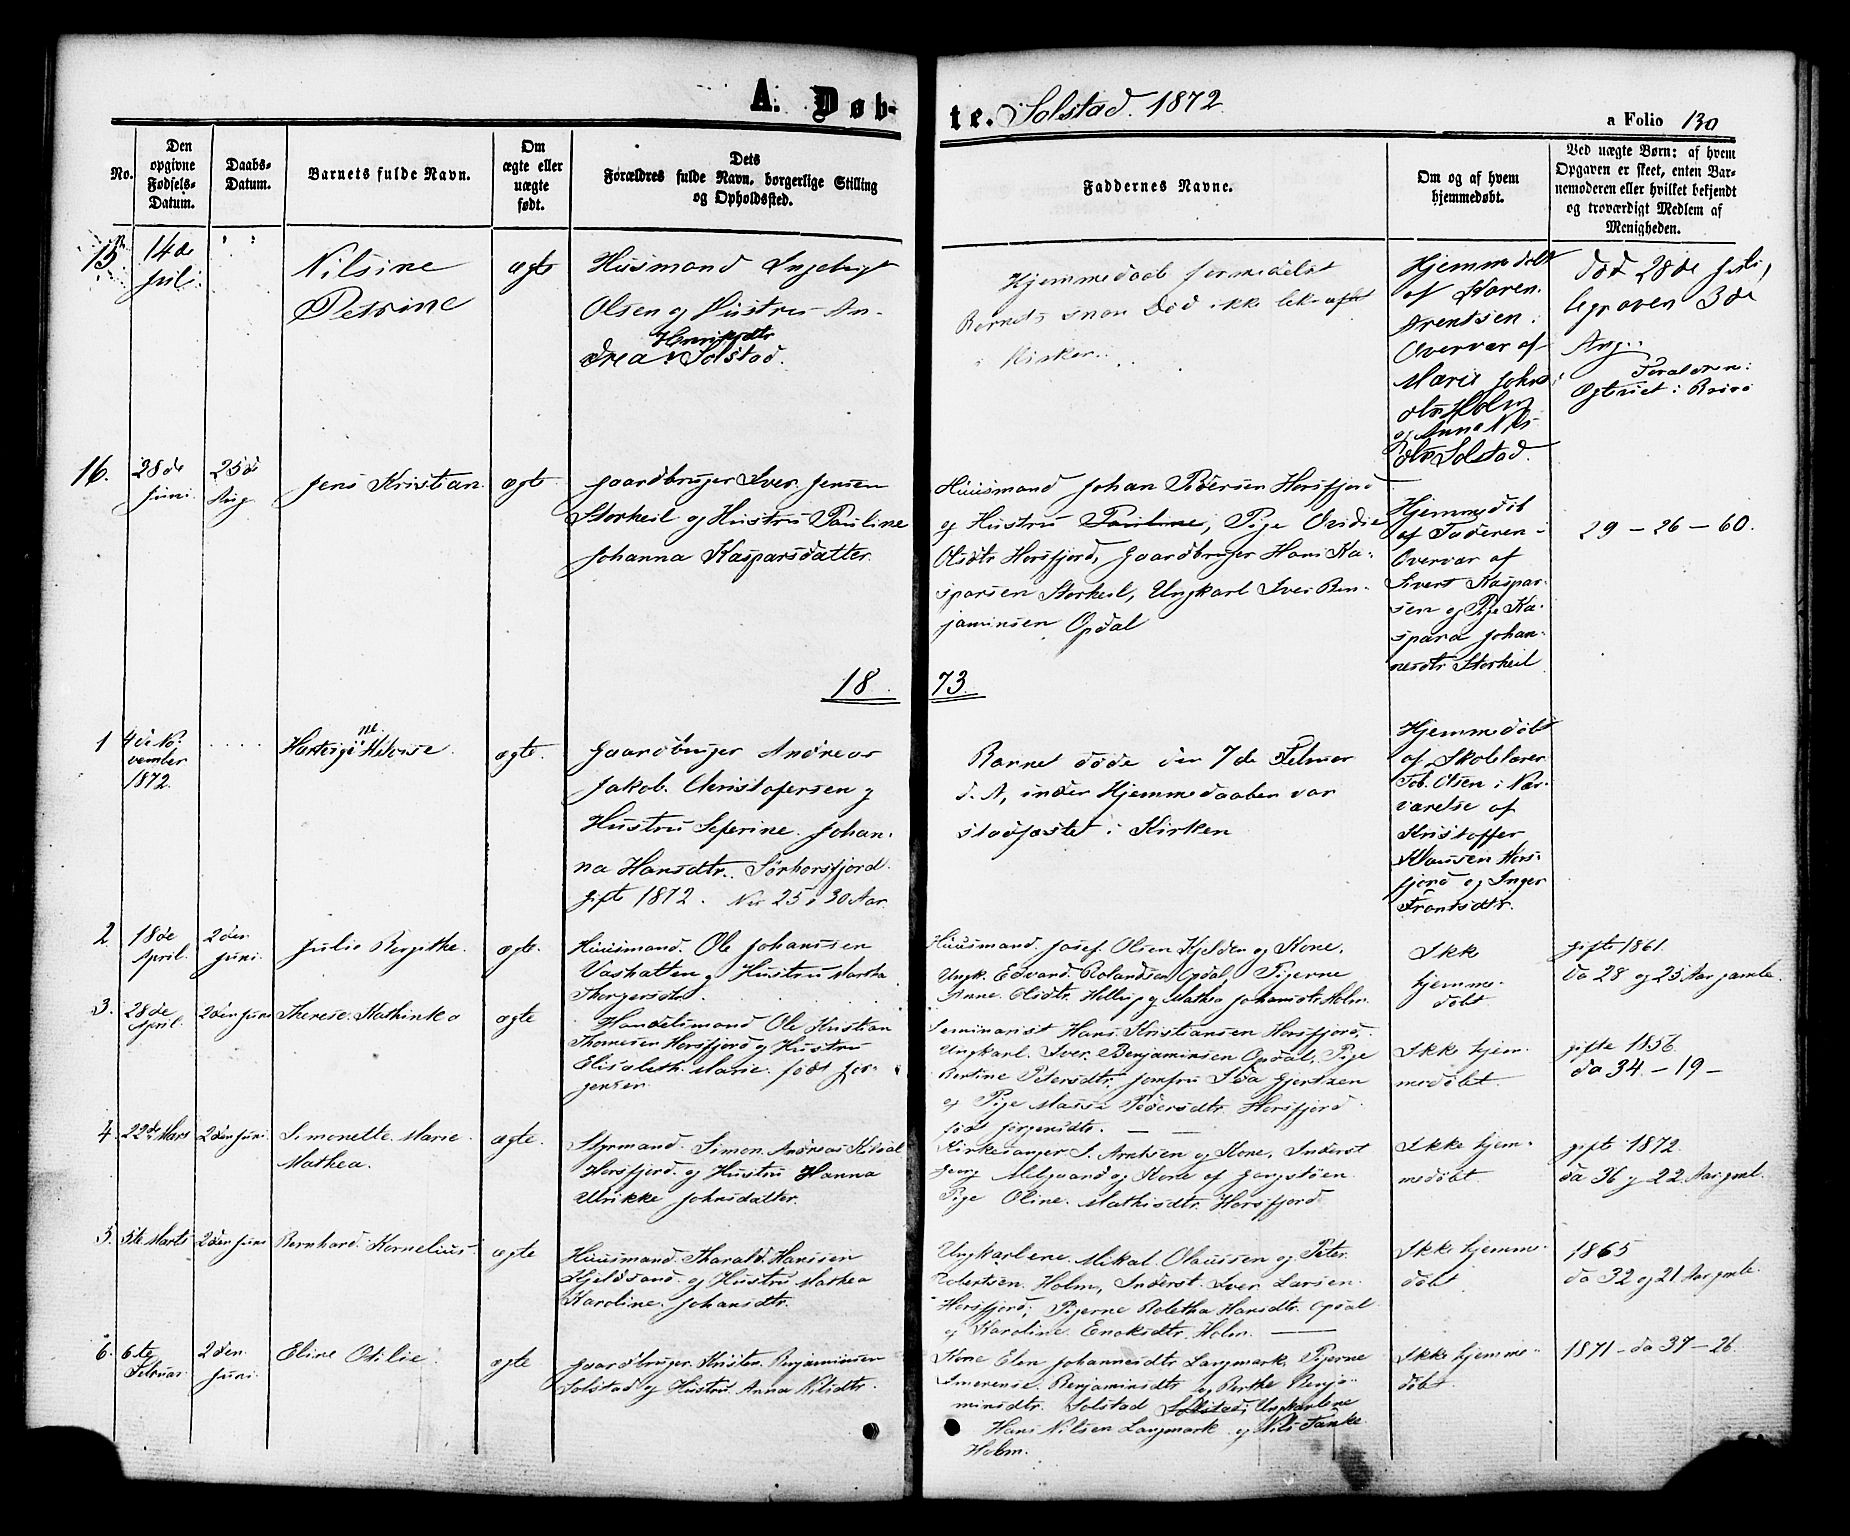 A. Døb-
te. Solstad. 1872
a Folio 130
No.
Den
opgivne
Fødsels-
Datum.
Daabs-
Datum.
Barnets fulde Navn.
Om
ægte eller
uægte
født.
Dets
Forældres fulde Navn, borgerlige Stilling
og Opholdssted.
Faddernes Navne.
Om og af hvem
hjemmedøbt.
Ved uægte Børn: af hvem
Opgaven er skeet, enten Bar-
nemoderen eller hvilket bekjendt
og troværdigt Medlem af
Menigheden.
15
14de
Juli
Nilsine
Petrine
ægte
Husmand Ingebrigt
Olsen og Hustru An-
drea Henriksdtr
Solstad.
Hjemmedaab formedelst
Barnets snare Død ikke bekræftet
i Kirken.
Hjemmedøbt
af Karen
Arentsen
Overvær af
Marie Johns
dtr Holm
og Anna Nils
dtr Solstad.
Død 28de Juli,
begraven 3de
Aug.
Forældren:
Ægteviet i
16.
28de
Juni
25de
Aug
Jens Kristian
ægte
Gaardbruger Iver Jensen
Storheil og Hustru Pauline
Johanna Kasparsdatter.
Huusmand Johan Pedersen Horsfjord
og Hustru Pauline, Pige Ovidie
Olsdtr Horsfjord, Gaardbruger Hans Ka-
sparsen Storheil, Ungkarl Iver Ben-
jaminsen Opdal
Hjemmedøb
af Faderen
Overvær af
Sivert Kaspar-
sen og Pige Ka-
spara Johan-
nesdtr Storheil
29 - 26 - 60.
18 73.
1
4de No-
vember
1872.
Hartvigine Helene.
ægte.
Gaardbruger Andreas
Jakob Christofersen og
Hustru Seferine Johan-
na Hansdtr. Sørhorsfjord.
gift 1872. 25 & 30 Aar.
Barnet døde den 7de Februar
d. A, inden Hjemmedaaben var
stadfæstet i Kirken
Hjemmedøbt
af Skolelærer
Tob. Olsen i Nær-
værelse af
Kristoffer
Klausen Hors-
fjord og Inger
Frantsdtr.
2.
18de
April.
2den
Juni.
Julie Bergithe.
ægte.
Huusmand. Ole Johanssen
Vashatten og Hustru Martha
Thorgersdtr.
Huusmand. Josef Olsen Kjelden og Kone.
Ungk. Edvard Rolandsen Opdal, Pigerne
Anne Olsdtr. og Mathea Johansdtr Holm.
Ikke
hjemme-
døbt
gifte 1861.
da 28 og 25 Aar gamle
3.
28de
April.
2den Juni
Therese Kathinka
ægte
Handelsmand Ole Kristian
Thomesen Horsfjord og Hustru
Elisabeth Marie født Jør-
gensen
Seminarist Hans Kristiansen Horsfjord,
Ungkarl. Iver Benjaminsen Opdal, Pige
Bertine Petersdtr, Jomfru Ida Gjertzen
og Pige Pedersdtr Horsfjord
født Jørgensdtr.
Ikke hjem-
medøbt.
gifte 1856
da 34 - 19 -
4.
22de Mars
2den Juni.
Simonette Marie
Mathea.
ægte.
Styrmand. Simon Andreas
Horsfjord. og Hustru Hanna
Ulrikke Johnsdatter.
Kirkesanger S. Arntsen og Kone, Inderst
Georg og Kone af
Pige Oline Mathisdtr Horsfjord
Ikke hjem-
medøbt
gift 1872.
da 36 og 22 Aar gml.
5.
5te Marts
2den Juni
Bernhard Kornelius
ægte
Huusmand. Tharald Hanssen
Kjeldsand. og Hustru Mathea
Karoline Johansdtr.
Ungkarlene Mikal Olaussen og Peter
Robertsen Holm, Inderst Iver Larsen
Horsfjord; Pigerne Roletha Hansdtr Opdal
og Karoline Enoksdtr. Holm.
Ikke hjemme-
døbt
1865
da 32 og 21 Aar gamle
6.
6te
Februar
2den
Juni
Eline Otilie.
ægte
Gaardbruger Kristen Benjaminsen
Solstad og Hustru. Anna Nilsdtr.
Kone Elen Johannesdtr Langmark, Pigerne
Imerense Benjaminsdtr og Berthe Benja-
minsdtr. Solstad Solstad, Ungkarlene
Hans Nilsen Langmark og Nils Tanke
Holm.
Ikke hjemme-
døbt
1871 - da 37 - 26.